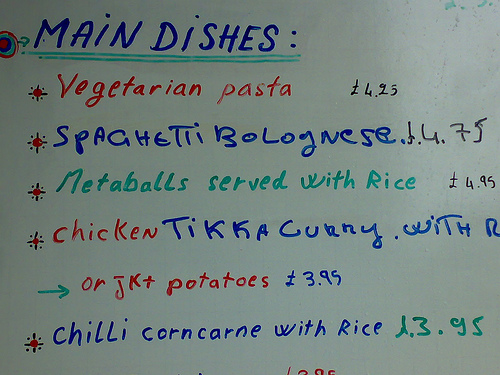 MAIN DISHES:
Vegetarian pasta £4.25
SPAGHETTi BOLOGNESE. £4.75
Metaballs served with Rice £4.95
chicken TiKKA CURRY. WiTH R
→ or jkt potatoes £3.95
chilli corncarne with Rice £3.95